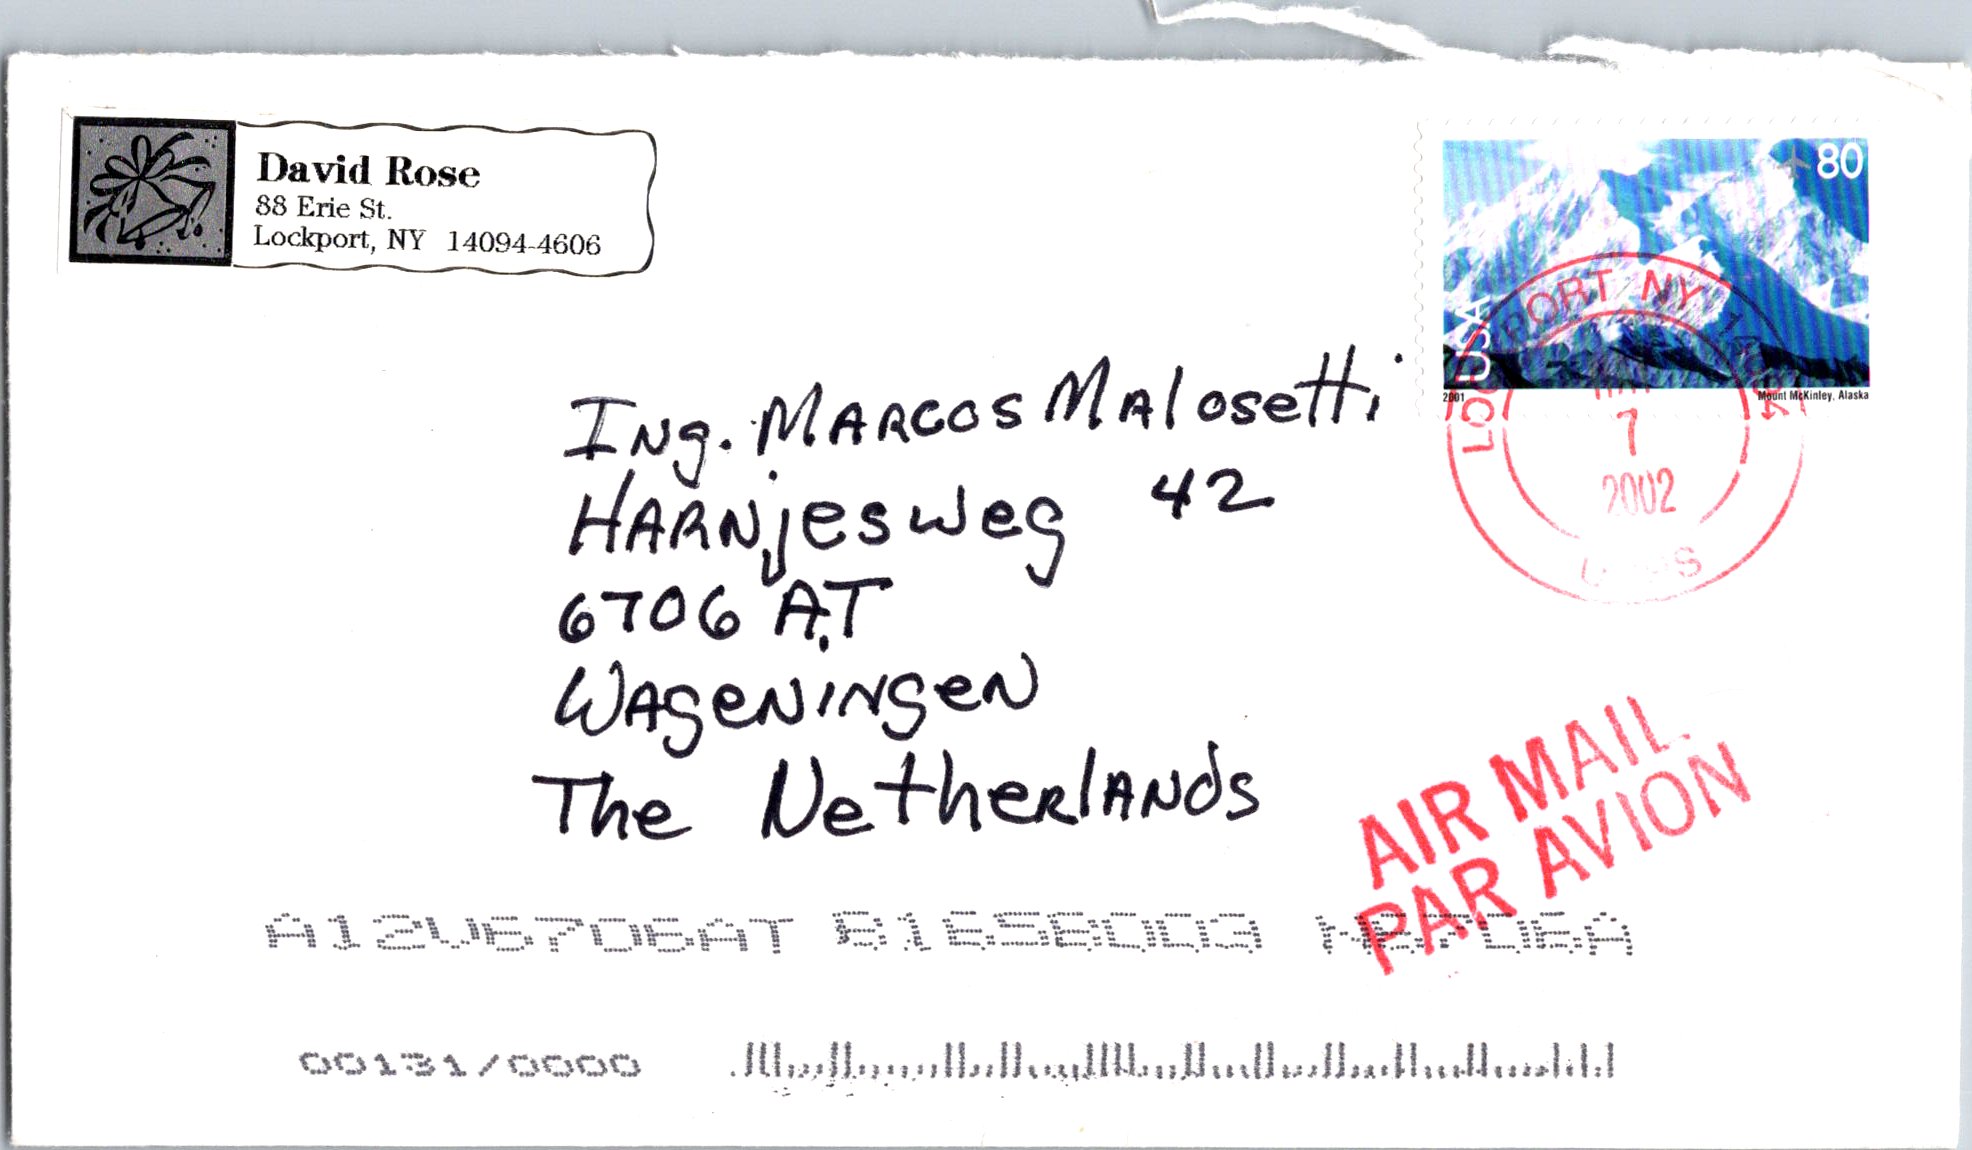 David Rose
88 Erie St.
Lockport, NY 14094-4606
80
USA
2001
Mount McKinley, Alaska
PORT NY
7
2002
Ing. Marcos Malosetti
Harnjesweg 42
6706 AT
Wageningen
The Netherlands
AIR MAIL
PAR AVION
00131/0000